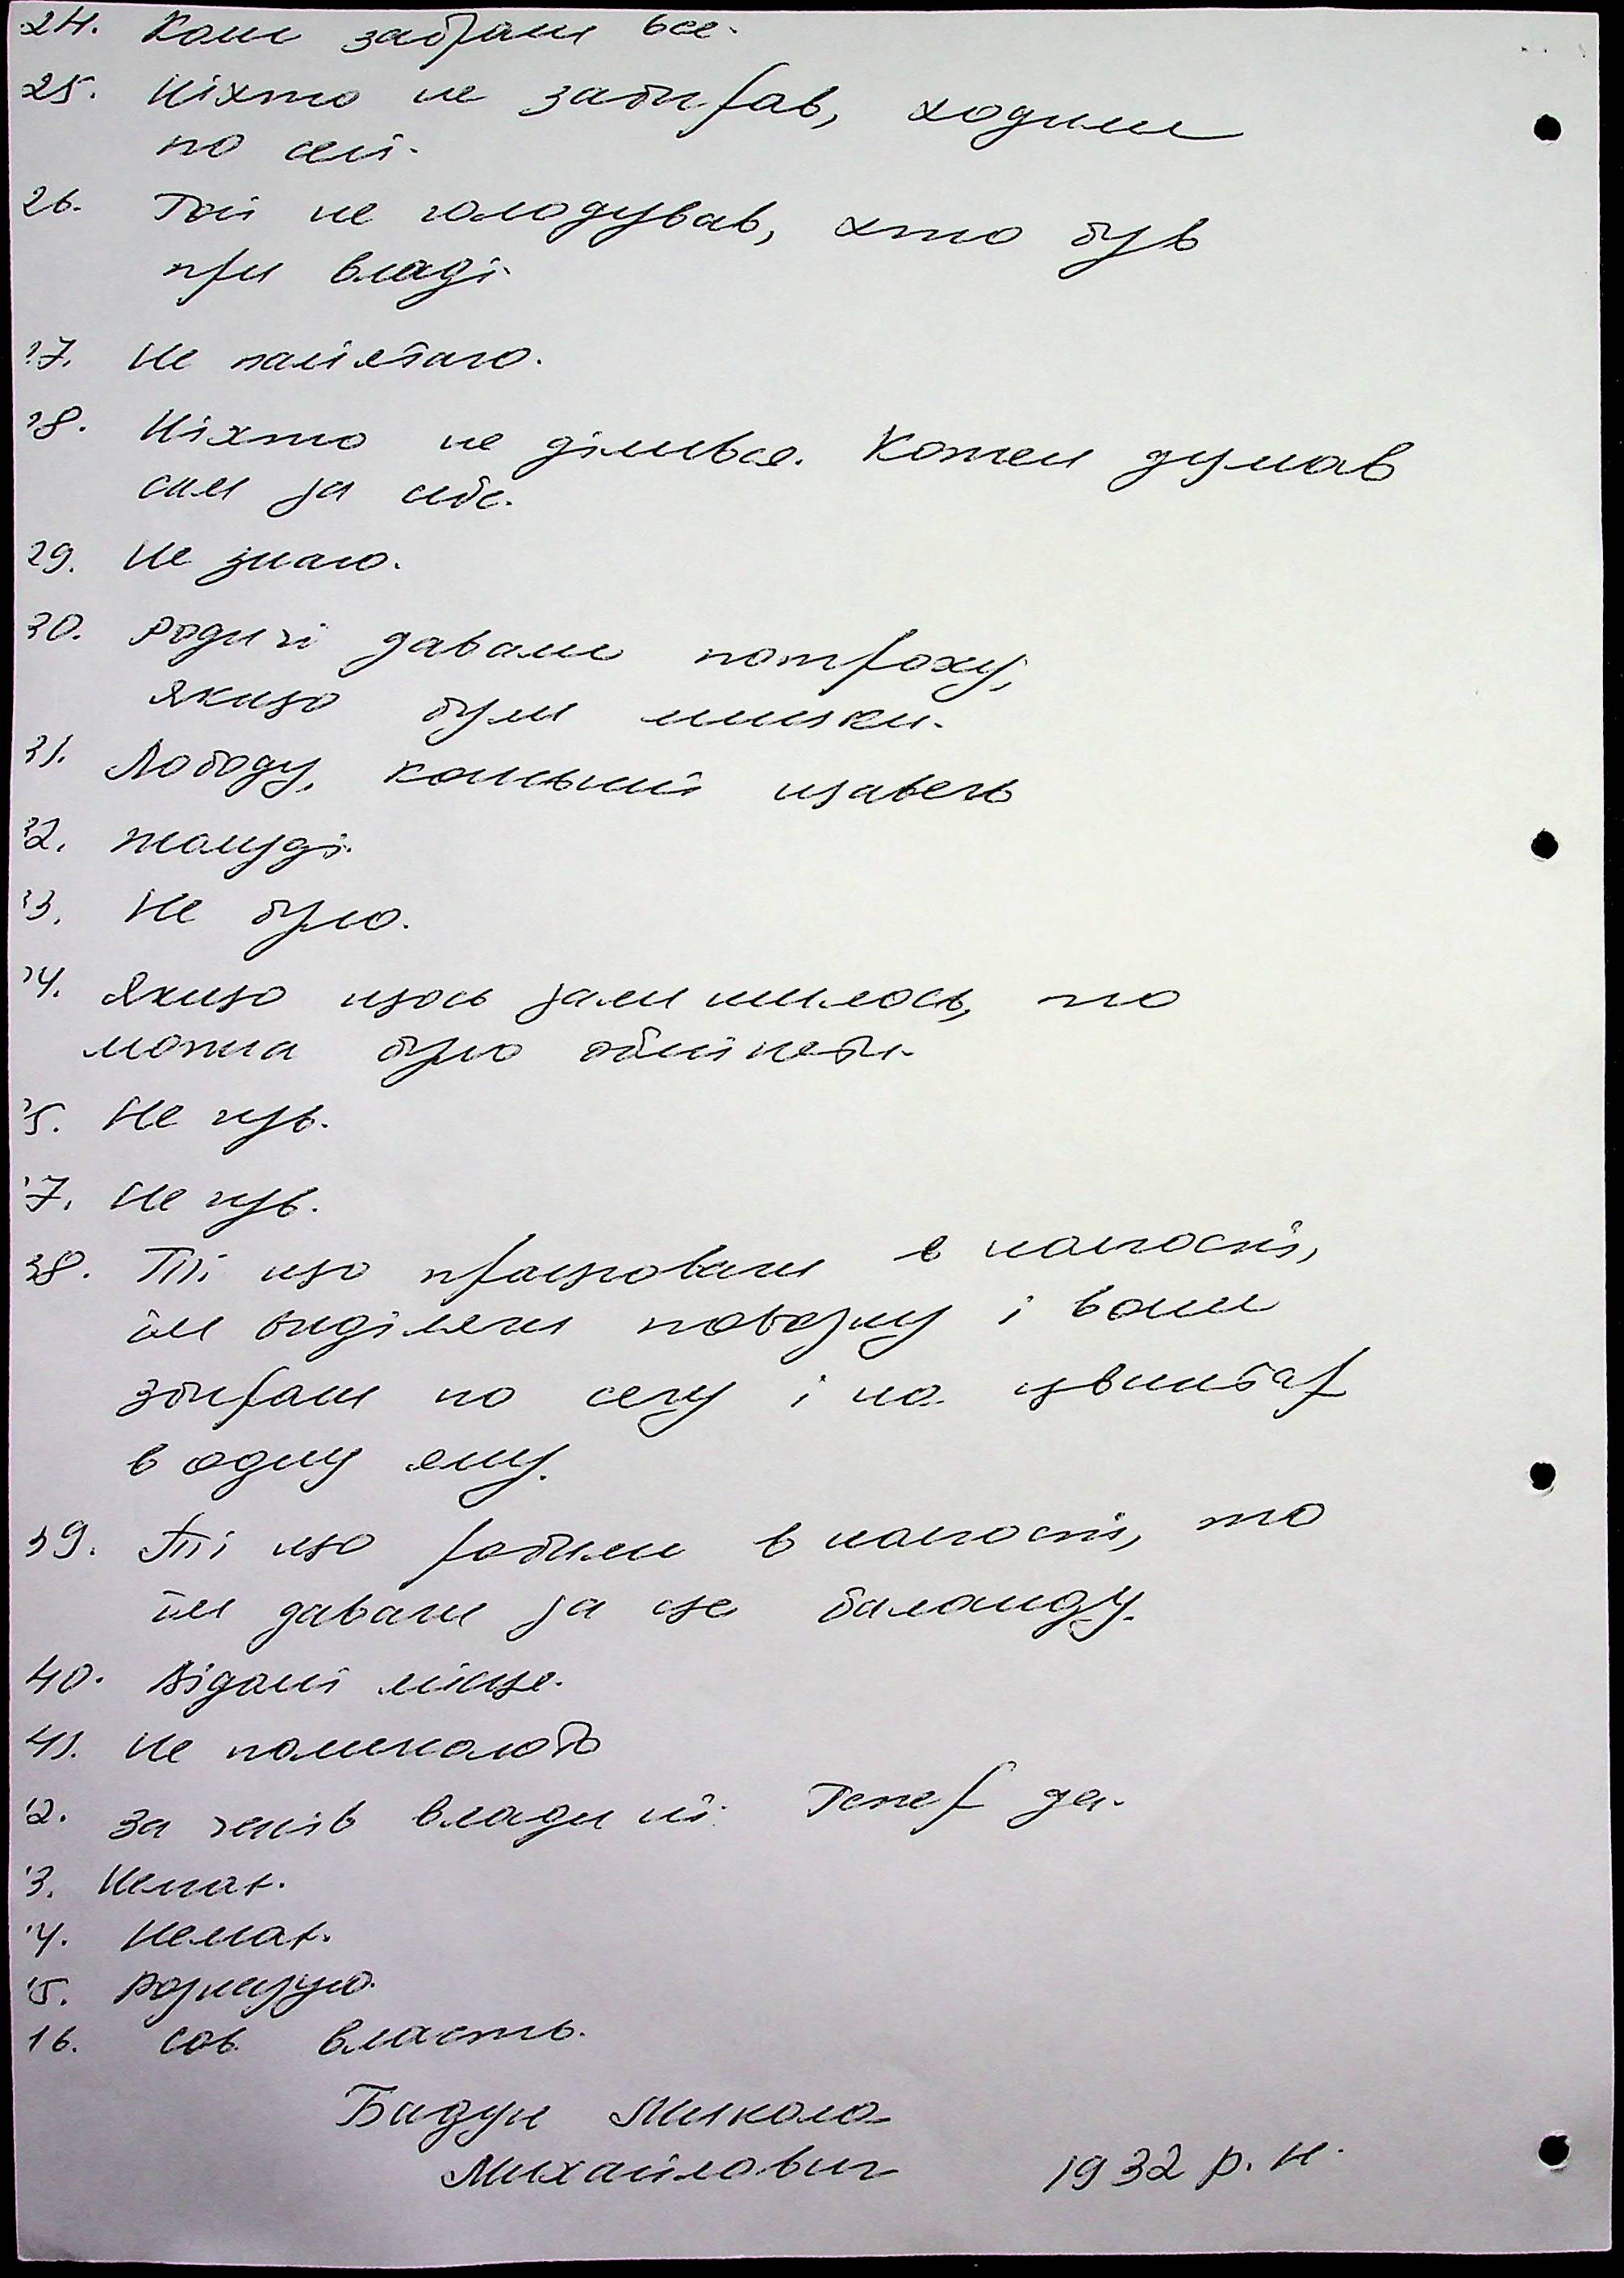 24. Коли забрали все.
25. Ніхто не забирав, ходили
по селі.
26. Той не голодував, хто був
при владі.
27. Не памятаю.
28. Ніхто не ділився. Кожен думав
сам за себе.
29. Не знаю.
30. Родичі давали потроху,
якщо були лишки.
31. Лободу, конський щавель
32. жолуді.
33. Не було.
34. Якщо щось залишилось, то
можна було обміняти.
35. Не чув.
37. Не чув.
38. Ті що працювали в колгоспі,
їм виділяли повозку і вони
збирали по селу і на цвинтар
в одну яму.
39. Ті що робили в колгоспі, то
їм давали за це баланду.
40. Відомі місця.
41. Не поминають
42. За часів влади ні. Тепер да.
43. Немає.
44. Немає.
45. Розказую.
46. Сов. власть.
Бидун Микола
Михайлович 1932 р. н.